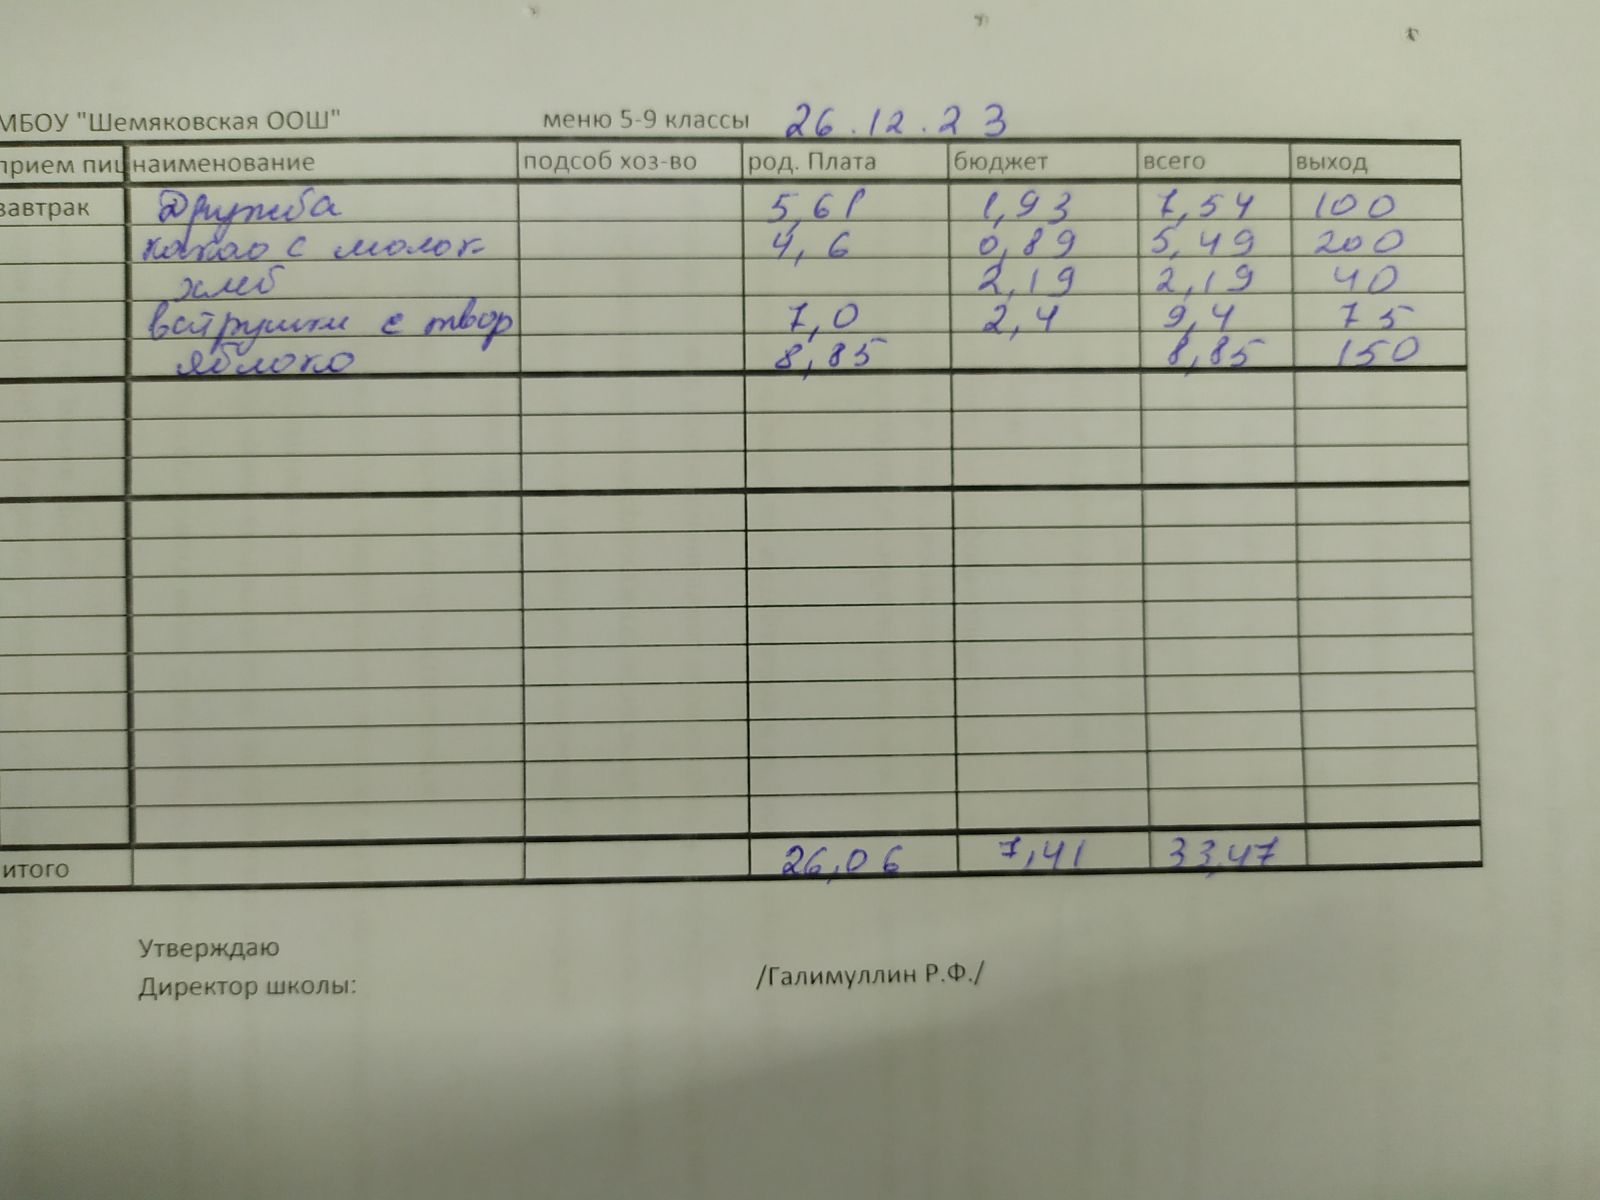 МБОУ "Шемяковская ООШ" меню 5-9 классы 26.12.23
прием пищ наименование подсоб хоз-во род. Плата бюджет всего выход
завтрак Дружба 5,61 1,93 7,54 100
какао с молок 4,6 0,89 5,49 200
хлеб 2,19 2,19 40
ватрушки с твор 7,0 2,4 9,4 75
яблоко 8,85 8,85 150
итого 26,06 7,41 33,47
Утверждаю
Директор школы: /Галимуллин Р.Ф./